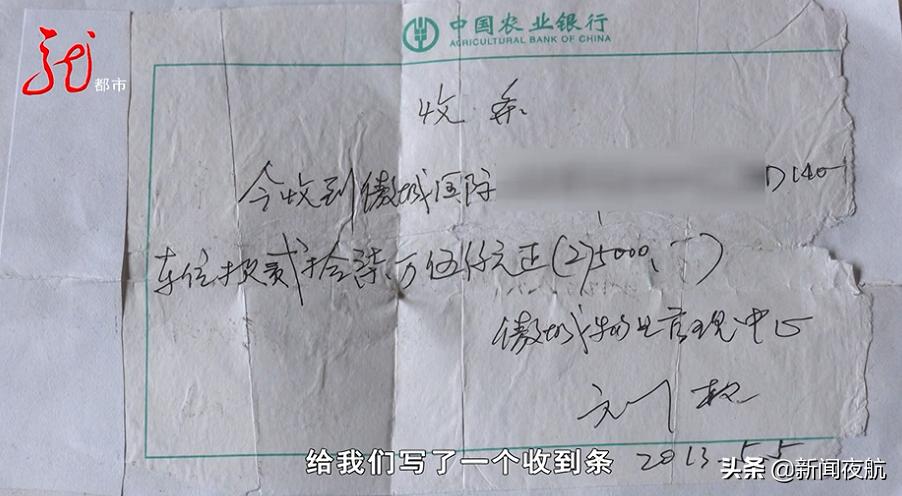 龙
都市
中国农业银行
AGRICULTURAL BANK OF CHINA
收 条
今收到傲城国际 D140
车位款贰拾柒万伍仟元正(275000,一)
傲城物业管理中心
刘权
2013.5.5
给我们写了一个收到条
头条 @新闻夜航